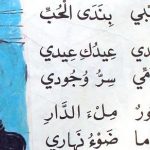 بي بِنَدَى الْحُبِّ
دِي عِيدُكِ عِيدِي
مِّي سِرُّ وُجُودِي
ورٌ مِلْءَ الدَّارِ
ما ضَوْءُ نَهَارِي